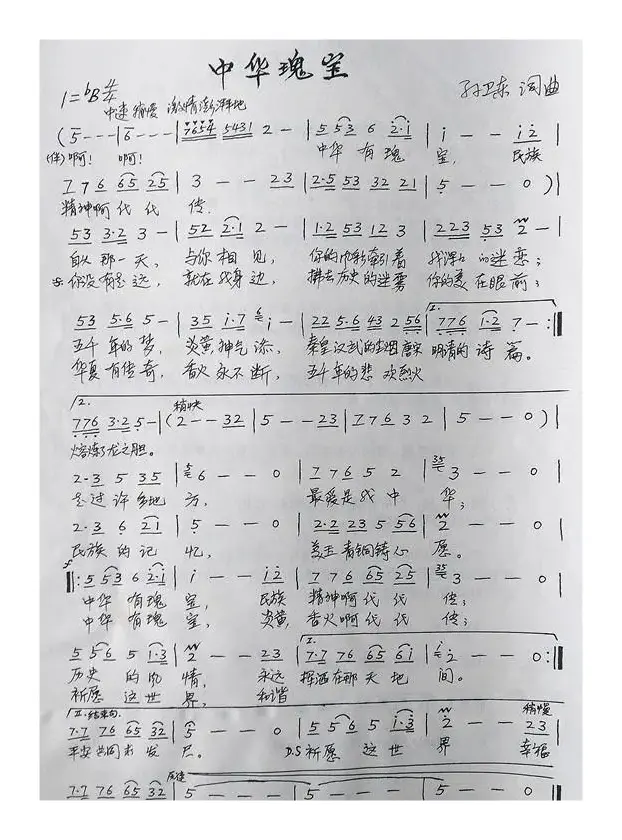 中华瑰宝
1=♭B 4/4
孙卫东 词曲
中速稍慢 激情澎湃地
(5 - - - | 6 - - - | 7654 5431 2 - | 5 53 6 2·1 | i - - i2 |
(伴)啊! 啊! 中华 有瑰 宝, 民族
7 7 6 65 25 | 3 - - 23 | 2·5 53 32 21 | 5 - - 0 )|
精神啊代代 传.
53 3·2 3 - | 52 2·1 2 - | 1·2 53 12 3 | 223 53 2 - |
自从那一天, 与你相见, 你的 牵引着 我 的迷恋;
你没有走远, 就在我身边, 拂去历史的迷雾 你的美在眼前;
53 5·6 5 - | 35 i·7 6 i - | 22 5·6 43 2 56 | 1. 776 1·2 7 - :‖
五千年的梦, 炎黄神气添, 秦皇汉武的 唐宋 明清的诗篇。
华夏有传奇, 香火永不断, 五千年的悲欢烈火
2. 稍快
776 3·2 5 - | (2 - - 32 | 5 - - 23 | 7 7 6 3 2 | 5 - - 0 )|
熔炼了龙之胆。
2·3 5 35 | 6 - - 0 | 7 7 6 5 2 | 3 - - 0 |
走过许多地方, 最爱是我中华;
2·3 6 21 | 5 - - 0 | 2·2 23 5 56 | 2 - - 0 |
民族的记忆, 美玉青铜铸心愿。
‖: 5 53 6 2·1 | i - - i2 | 7 7 6 65 25 | 3 - - 0 |
中华 有瑰宝, 民族 精神啊代代传;
中华 有瑰宝, 炎黄 香火啊代代传;
1.
5 56 5 i·3 | 2 - - 23 | 7·7 76 65 6i | 2 - - 0 :‖
历史的 情, 永远 挥洒在那天地间。
祈愿这世界, 和谐
II. 结束句. 稍慢
7·7 76 65 32 | 5 - - 0 | 5 5 6 5 i·3 | 2 - - 23 |
平安共同 发展。 D.S 祈愿这世界 幸福
7·7 76 65 32 | 5 - - - | 5 - - - | 5 - - 0 ‖